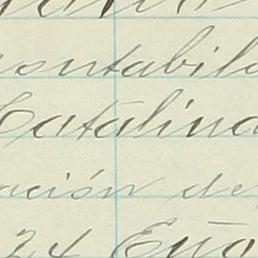 contabili
Catalina
ación de
24 Eño